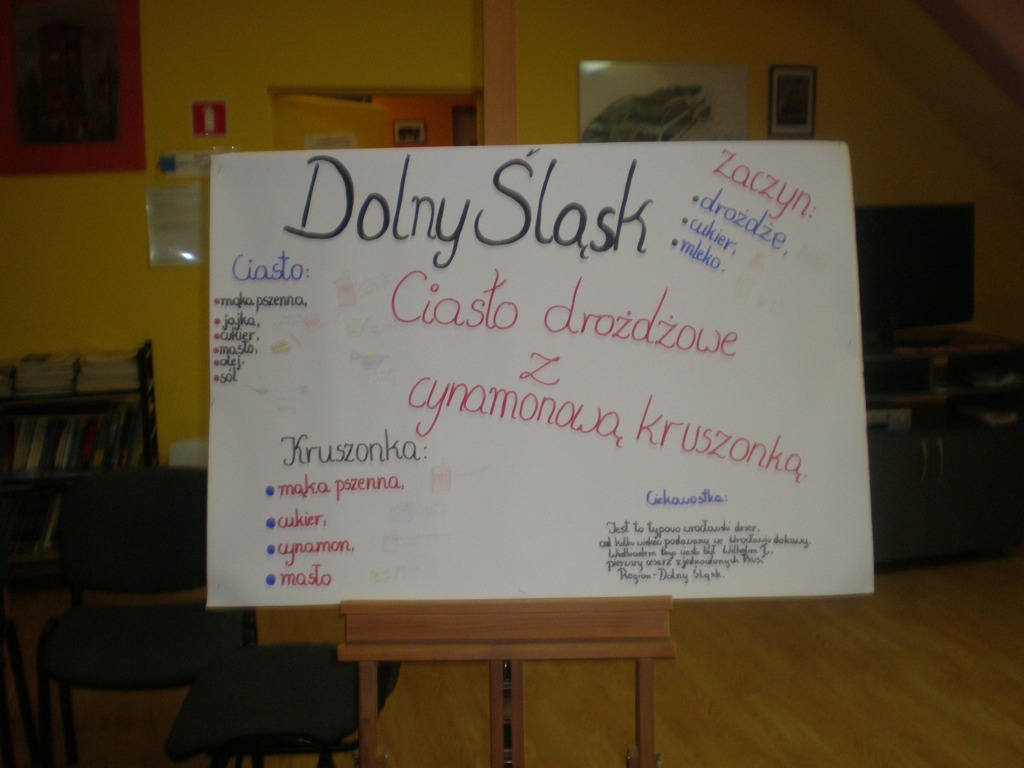 Dolny Śląsk
Zaczyn:
• drożdże,
• cukier,
• mleko.
Ciasto:
• mąka pszenna,
• jajka,
• cukier,
• masło,
• olej.
• sól
Ciasto drożdżowe
z
cynamonową kruszonką.
Kruszonka:
• mąka pszenna,
• cukier,
• cynamon,
• masło
Ciekawostka:
Jest to typowo wrocławski deser,
od kilku wieków podawany we Wrocławiu do kawy.
Wielbicielem tego ciasta był Wilhelm I,
pierwszy cesarz zjednoczonych Prus.
Region - Dolny Śląsk.